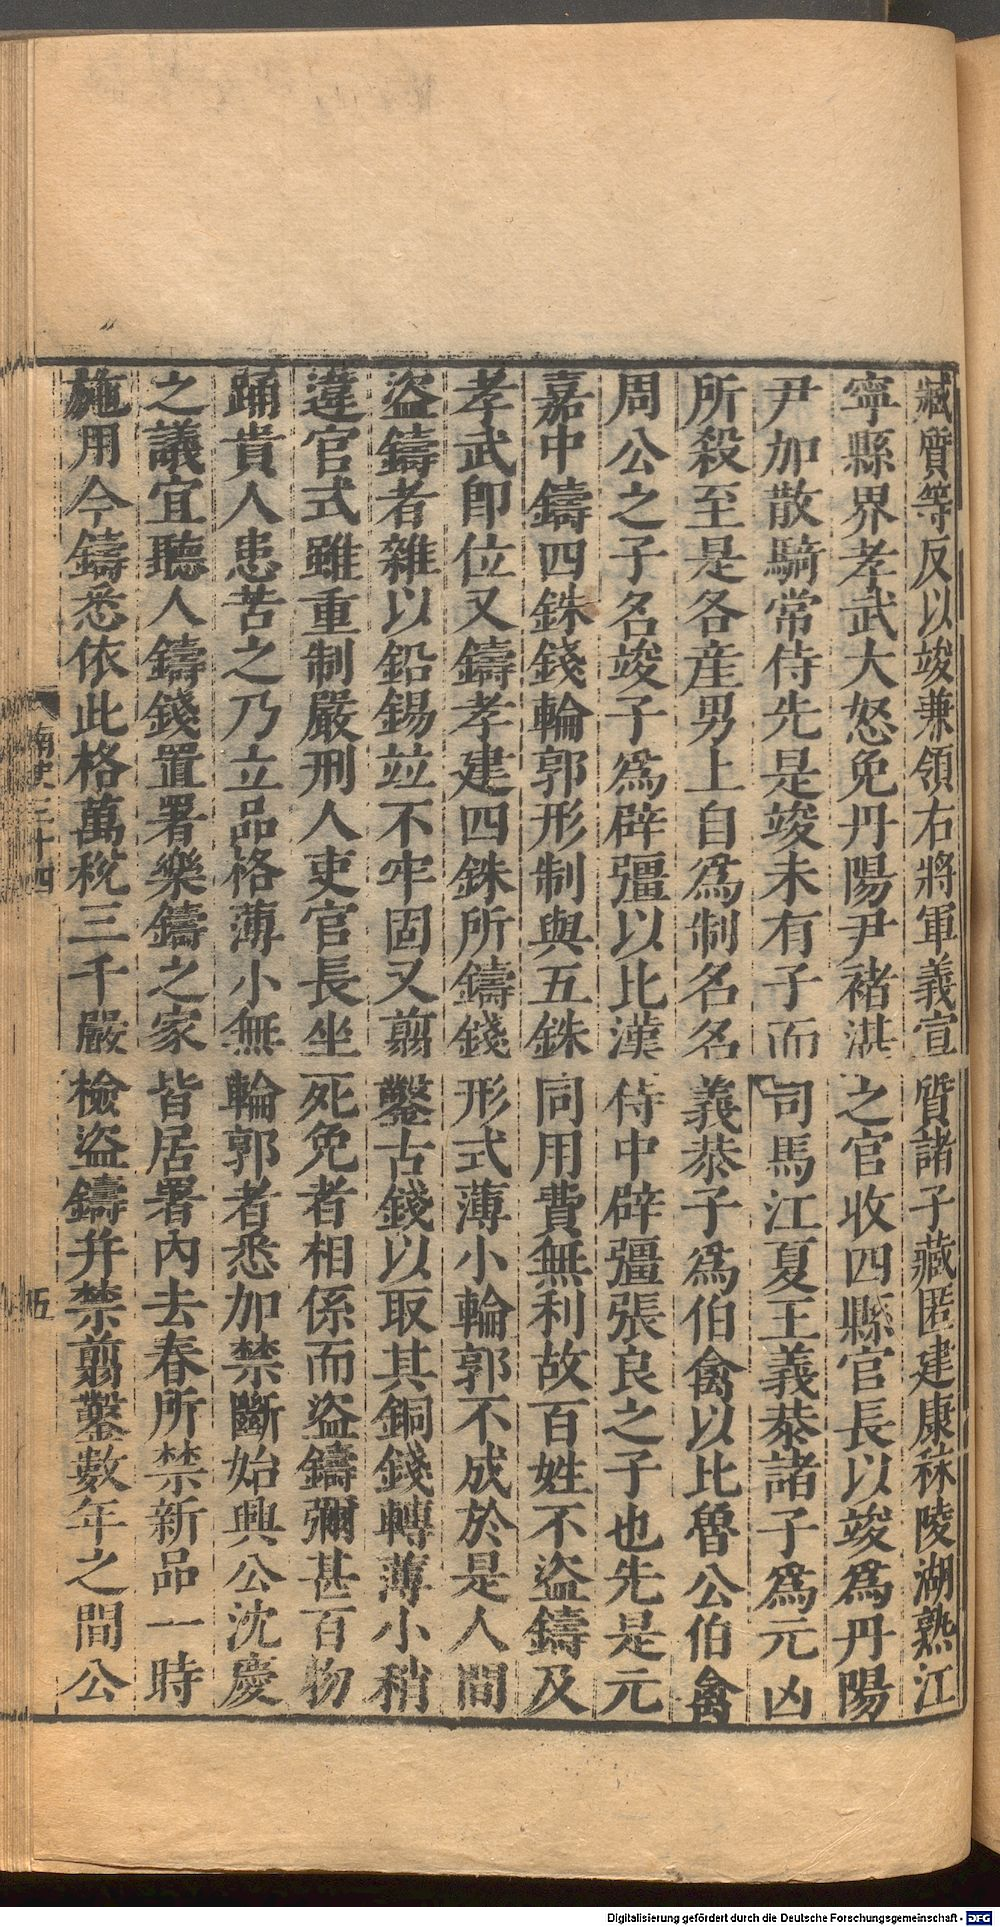 臧質等反以竣兼領右將軍義宣質諸子藏匿建康秣陵湖熟江
寧縣界孝武大怒免丹陽尹褚湛之官收四縣官長以竣爲丹陽
尹加散騎常侍先是竣未有子而司馬江夏王義恭諸子爲元凶
所殺至是各産男上自爲制名名義恭子爲伯禽以比魯公伯禽
周公之子名竣子爲辟彊以比漢侍中辟彊張良之子也先是元
嘉中鑄四銖錢輪郭形制與五銖同用費無利故百姓不盜鑄及
孝武卽位又鑄孝建四銖所鑄錢形式薄小輪郭不成於是人間
盜鑄者雜以鉛錫竝不牢固又翦鑿古錢以取其銅錢轉薄小稍
違官式雖重制嚴刑人吏官長坐死免者相係而盜鑄彌甚百物
踊貴人患苦之乃立品格薄小無輪郭者悉加禁斷始興公沈慶
之議宜聽人鑄錢置署樂鑄之家皆居署內去春所禁新品一時
施用今鑄悉依此格萬稅三千嚴檢盜鑄并禁翦鑿數年之間公
南史三十四
五
Digitalisierung gefördert durch die Deutsche Forschungsgemeinschaft - DFG